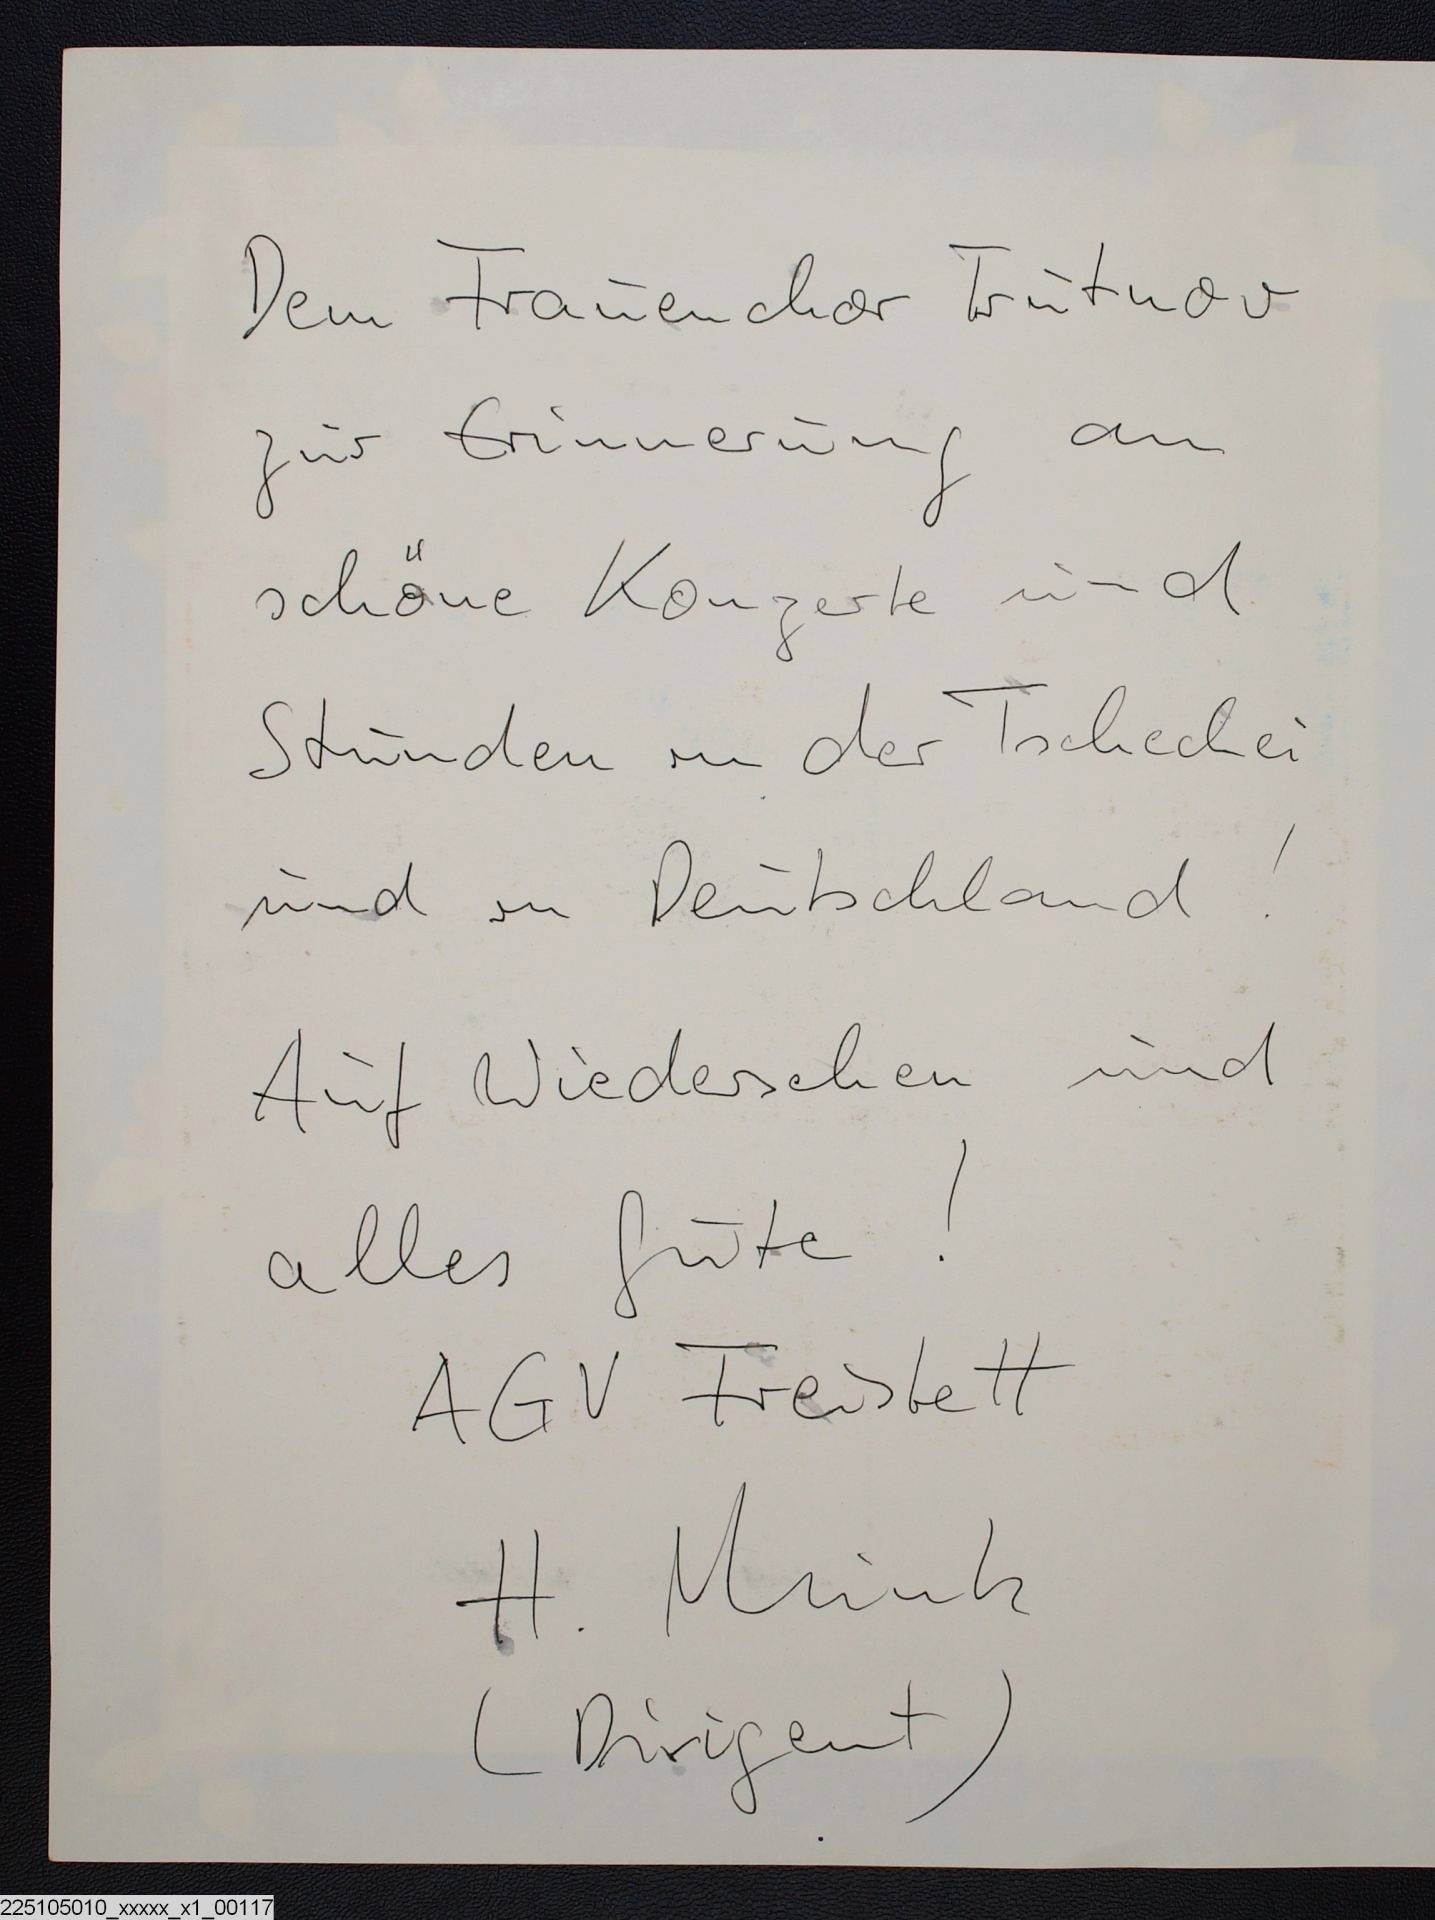 Dem Frauenchor Trutnov
zur Erinnerung an
schöne Konzerte und
Stunden in der Tschechei
und in Deutschland!
Auf Wiedersehen und
alles gute!
AGV Freistett
H.
(Dirigent)
225105010_xxxxx_x1_00117